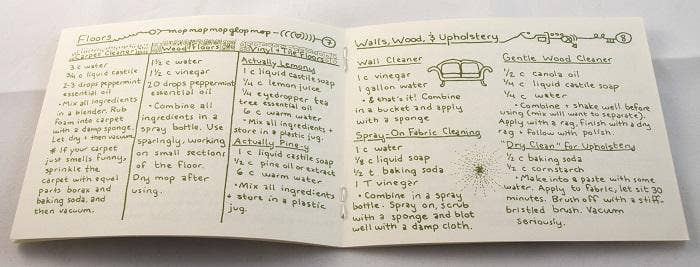 Floors
mop mop mop glop mop
7
Carpet Cleaner
3 c water
3/4 c liquid castile
2-3 drops peppermint
essential oil
• Mix all ingredients
in a blender. Rub
foam into carpet
with a damp sponge.
Let dry + then vacuum.
* If your carpet
just smells funny,
sprinkle the
carpet with equal
parts borax and
baking soda, and
then vacuum.
Wood Floors
1 1/2 c water
1 1/2 c vinegar
20 drops peppermint
essential oil
• Combine all
ingredients in a
spray bottle. Use
sparingly, working
on small sections
of the floor.
Dry mop after
using.
Vinyl + Tile Floors
Actually Lemony
1 c liquid castile soap
1/4 c lemon juice
1/4 eyedropper tea
tree essential oil
6 c warm water
• Mix all ingredients +
store in a plastic jug.
Actually Pine-y
1 c liquid castile soap
1/2 c pine oil or extract
6 c warm water
• Mix all ingredients
+ store in a plastic
jug.
Walls, Wood, & Upholstery
8
Wall Cleaner
1 c vinegar
1 gallon water
• & that's it! Combine
in a bucket and apply
with a sponge
Spray-On Fabric Cleaning
1 c water
1/8 c liquid soap
1/2 t baking soda
1 T vinegar
• Combine in a spray
bottle. Spray on, scrub
with a sponge and blot
well with a damp cloth.
Gentle Wood Cleaner
1/2 c canola oil
1/4 c liquid castile soap
1/4 c water
• Combine + shake well before
using (mix will want to separate).
Apply with a rag, finish with a dry
rag + follow with polish.
"Dry Clean" for Upholstery
1/2 c baking soda
1/2 c cornstarch
• Make into a paste with some
water. Apply to fabric, let sit 30
minutes. Brush off with a stiff-
bristled brush. Vacuum
seriously.